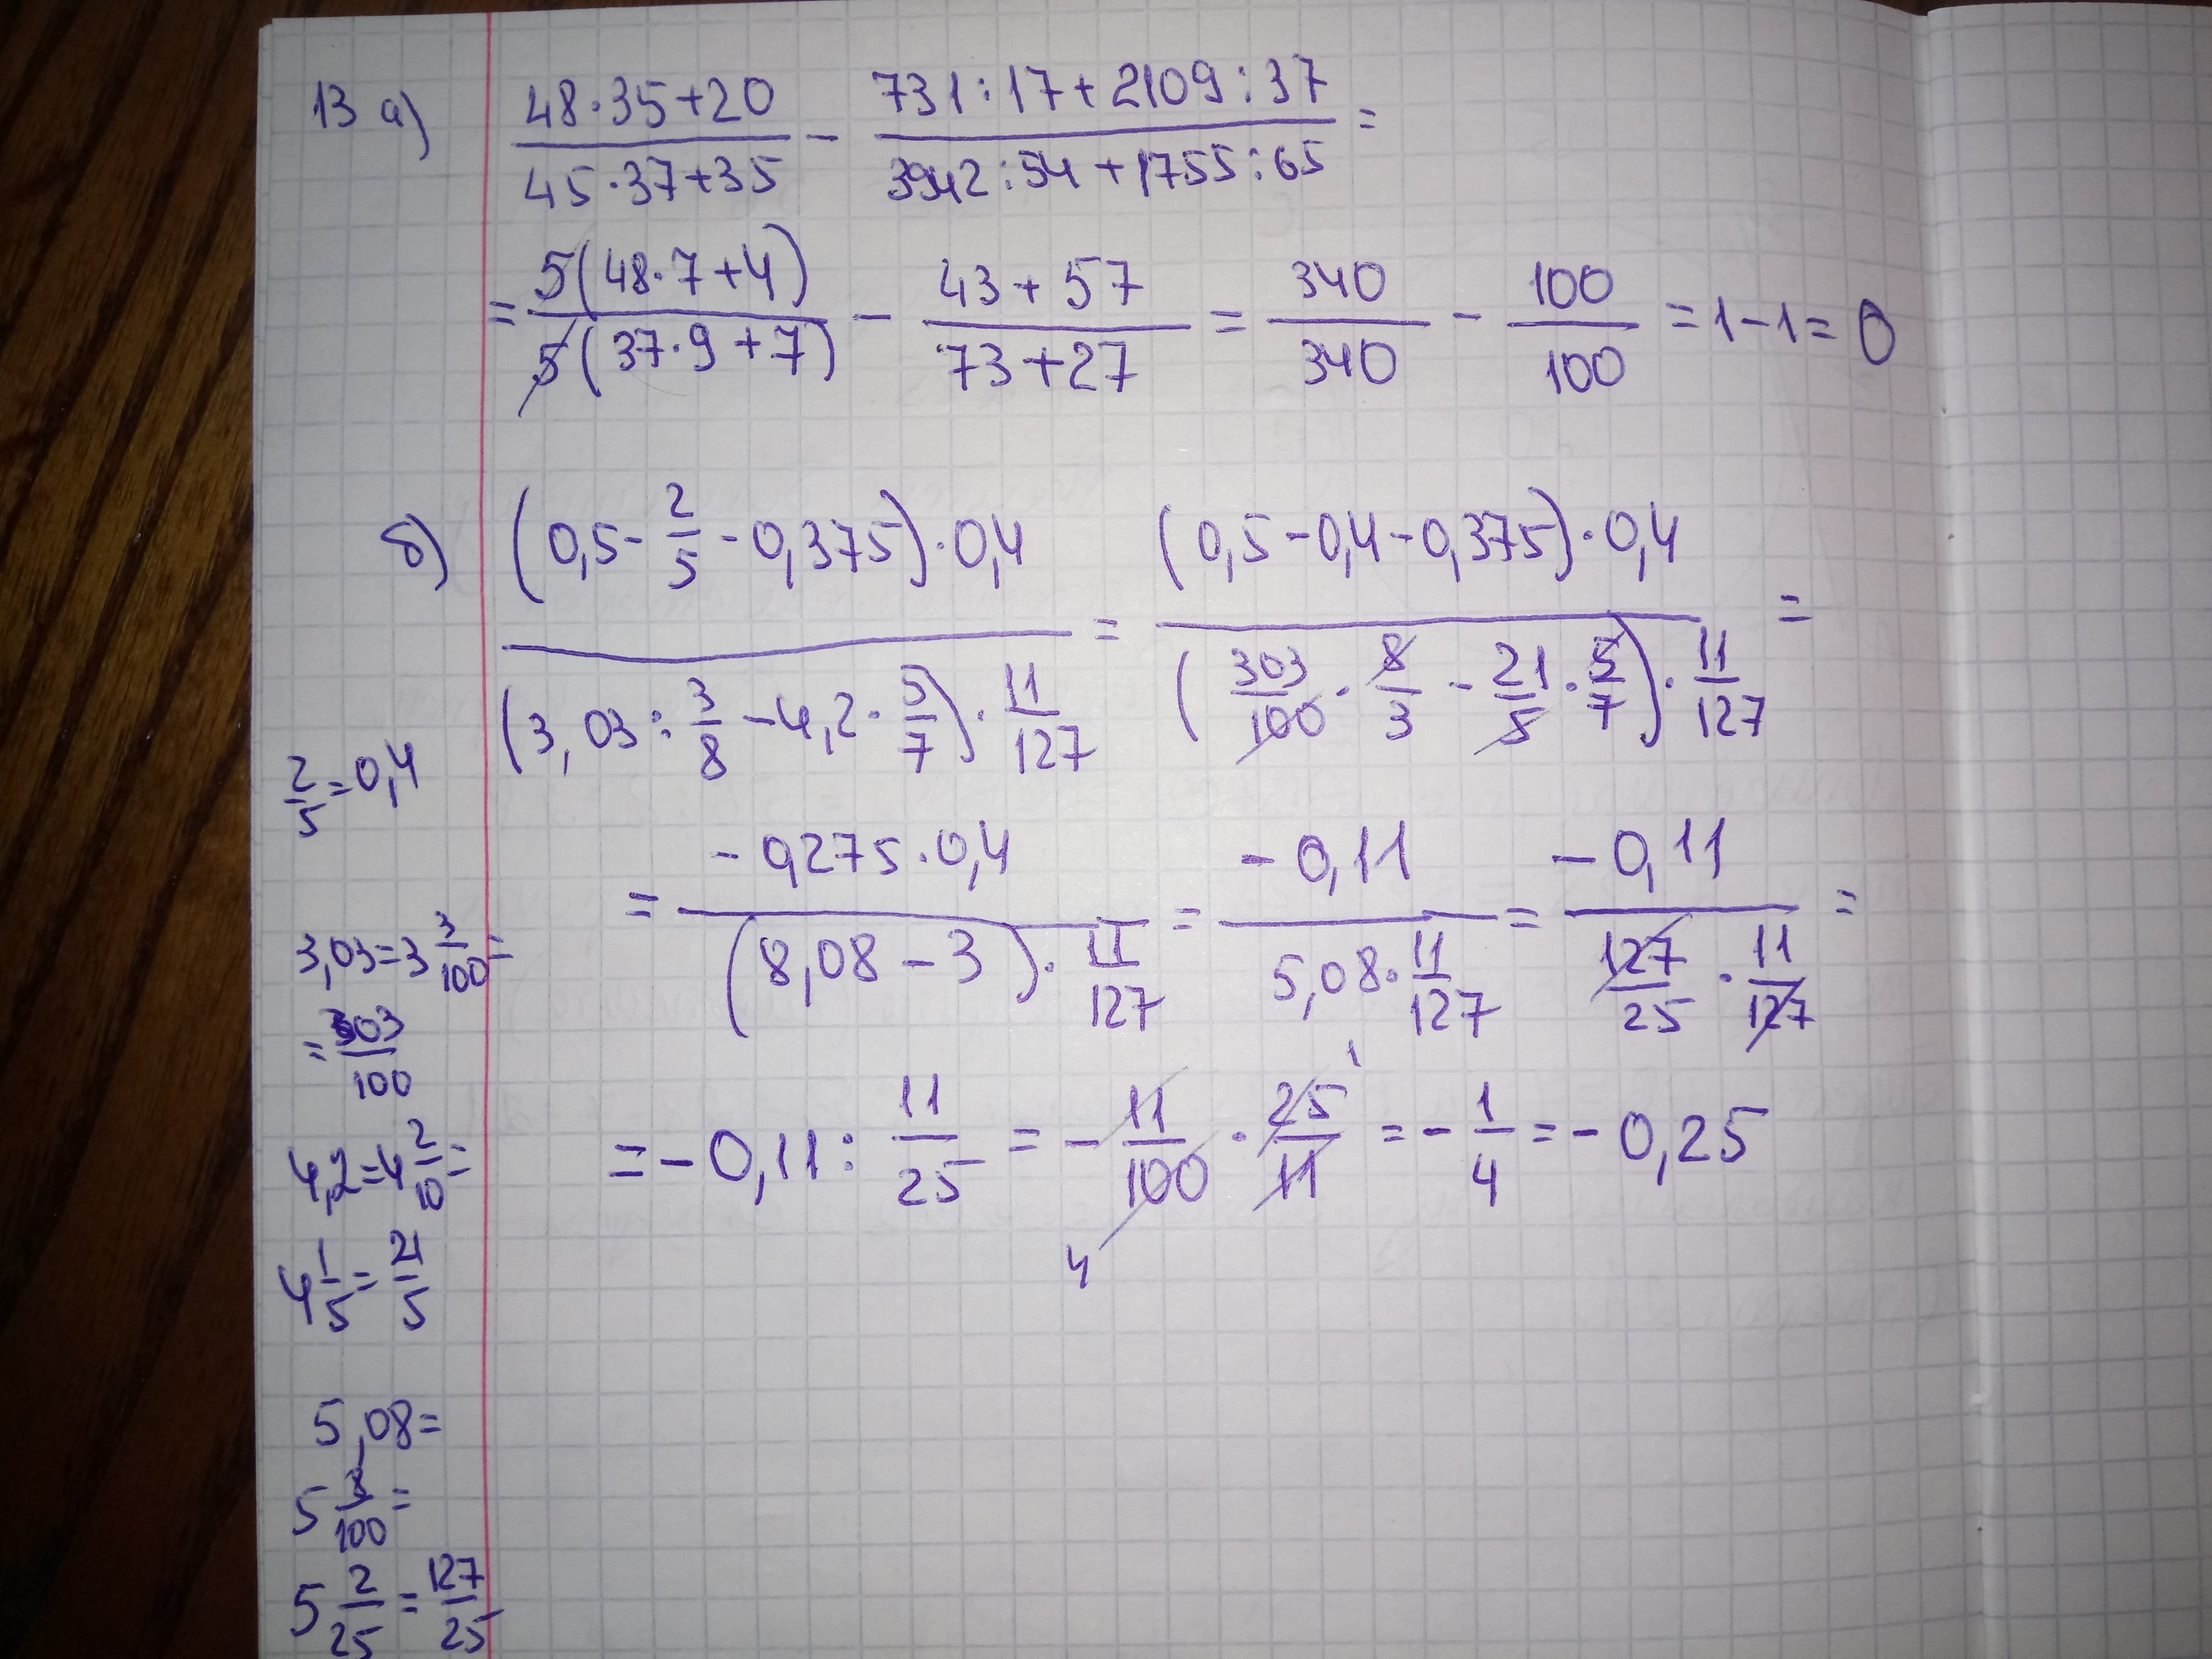 13 а) (48·35+20)/(45·37+35) − (731:17+2109:37)/(3942:54+1755:65) =
= 5(48·7+4)/5(37·9+7) − (43+57)/(73+27) = 340/340 − 100/100 = 1−1 = 0
б) (0,5 − 2/5 − 0,375)·0,4 / (3,03 : 3/8 − 4,2 · 5/7) · 11/127 = (0,5−0,4−0,375)·0,4 / (303/100 · 8/3 − 21/5 · 5/7) · 11/127 =
= −0,275·0,4 / (8,08−3) · 11/127 = −0,11 / 5,08 · 11/127 = −0,11 / 127/25 · 11/127 =
= −0,11 : 11/25 = − 11/100 · 25/11 = − 1/4 = −0,25
1
4
2/5 = 0,4
3,03 = 3 3/100 =
= 303/100
4,2 = 4 2/10 =
4 1/5 = 21/5
5,08 =
5 8/100 =
5 2/25 = 127/25